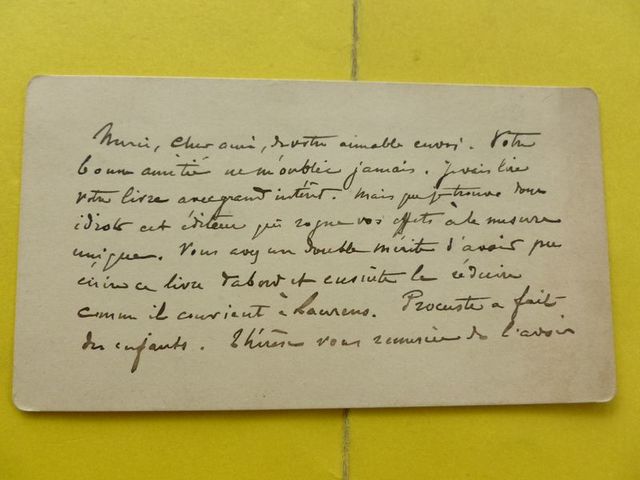 Merci, cher ami, de votre aimable envoi. Votre
bonne amitié ne m'oublie jamais. Je vais lire
votre livre avec grand intérêt. Mais que je trouve donc
idiot cet éditeur qui rogne vos effets à la mesure
unique. Vous avez un double mérite d'avoir pu
écrire ce livre d'abord et ensuite le réduire
comme il convient à Laurens. Procuste a fait
des enfants. Thérèse vous remercie de l'avoir